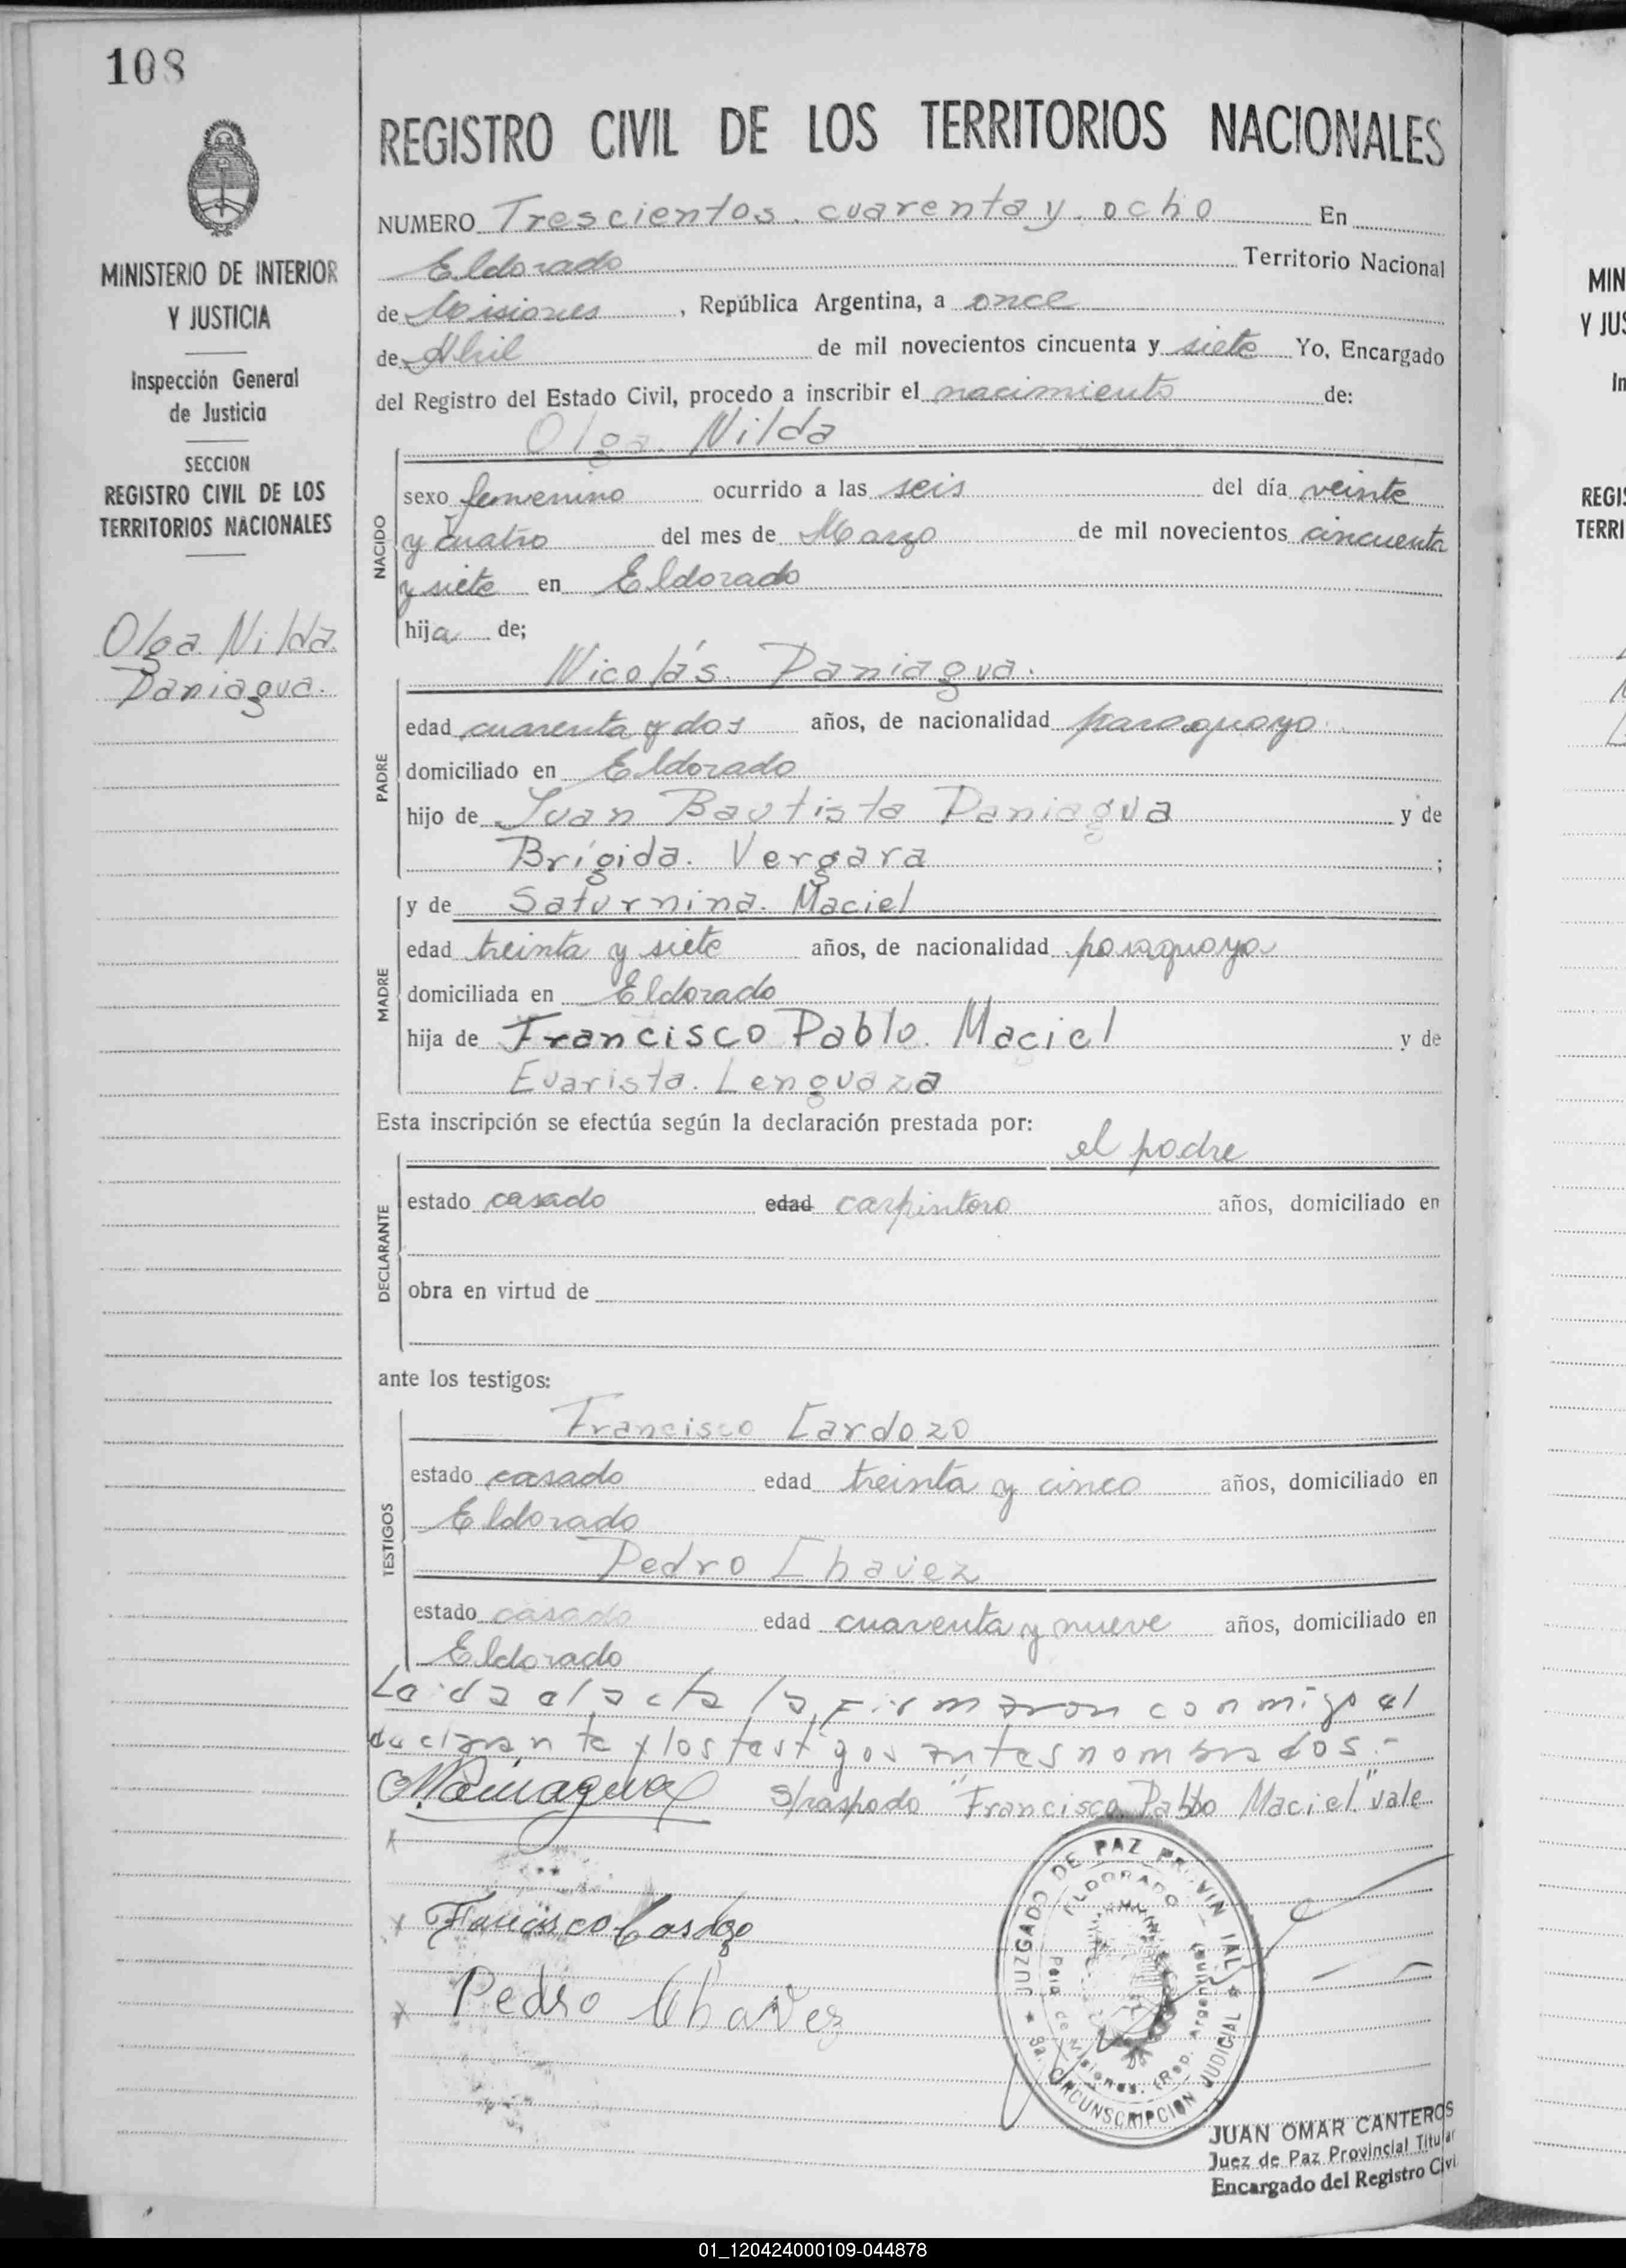 108
MINISTERIO DE INTERIOR
Y JUSTICIA
Inspección General
de Justicia
SECCION
REGISTRO CIVIL DE LOS
TERRITORIOS NACIONALES
Olga Nilda.
Paniagua.
REGISTRO CIVIL DE LOS TERRITORIOS NACIONALES
NUMERO Trescientos. cuarenta y. ocho En
Eldorado Territorio Nacional
de Misiones, República Argentina, a once
de Abril de mil novecientos cincuenta y siete Yo, Encargado
del Registro del Estado Civil, procedo a inscribir el nacimiento de:
Olga. Nilda
NACIDO
sexo femenino ocurrido a las seis del día veinte
y cuatro del mes de Marzo de mil novecientos cincuenta
y siete en Eldorado
hija de;
Nicolás. Paniagua.
PADRE
edad cuarenta y dos años, de nacionalidad paraguayo
domiciliado en Eldorado
hijo de Juan Bautista Paniagua y de
Brígida. Vergara ;
y de Saturnina. Maciel
MADRE
edad treinta y siete años, de nacionalidad paraguaya
domiciliada en Eldorado
hija de Francisco Pablo. Maciel y de
Evarista. Lenguaza
Esta inscripción se efectúa según la declaración prestada por:
el padre
DECLARANTE
estado casado edad carpintero años, domiciliado en
obra en virtud de
ante los testigos:
Francisco Cardozo
TESTIGOS
estado casado edad treinta y cinco años, domiciliado en
Eldorado
Pedro Chavez
estado casado edad cuarenta y nueve años, domiciliado en
Eldorado
Leida el acta la firmaron conmigo el
declarante y los testigos antes nombrados.-
NPaniagua S/raspado "Francisco Pablo Maciel" vale
x
x Francisco Cardozo
x Pedro Chavez
JUZGADO DE PAZ PROVINCIAL
ELDORADO
Pcia. de Misiones. (Rep. Argentina)
8a. CIRCUNSCRIPCION JUDICIAL
JUAN OMAR CANTEROS
Juez de Paz Provincial Titular
Encargado del Registro Civi
MIN
Y JUS
In
REGIS
TERRI
01_120424000109-044878